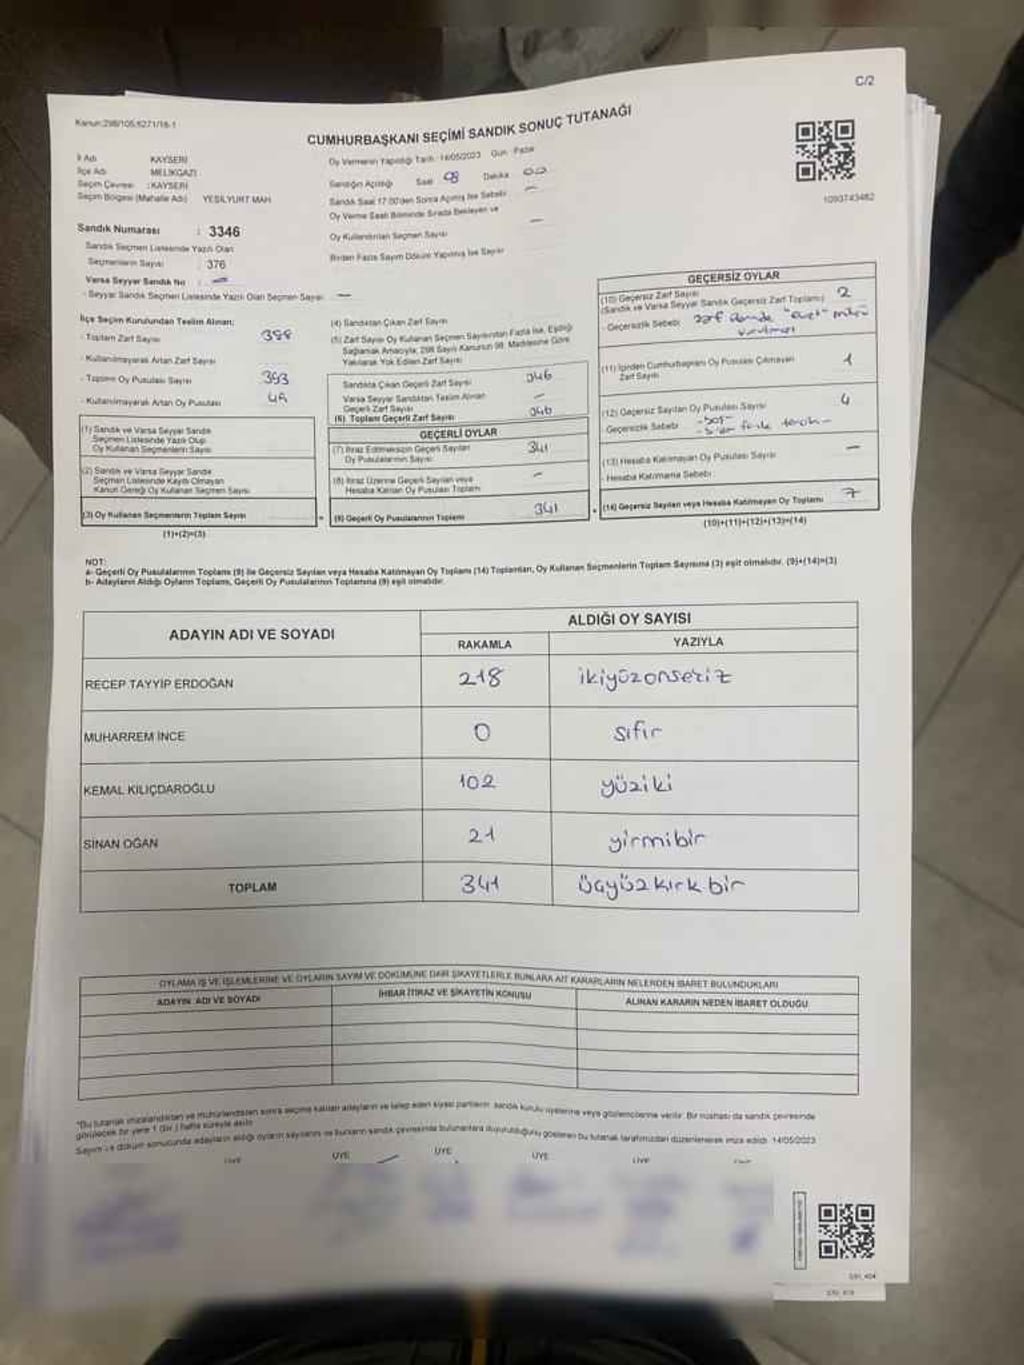 C/2
Kanun:298/105,6271/16-1
CUMHURBAŞKANI SEÇİMİ SANDIK SONUÇ TUTANAĞI
İl Adı KAYSERİ
İlçe Adı MELİKGAZİ
Seçim Çevresi :KAYSERİ
Seçim Bölgesi (Mahalle Adı) YEŞİLYURT MAH
Sandık Numarası : 3346
Sandık Seçmen Listesinde Yazılı Olan
Seçmenlerin Sayısı : 376
Varsa Seyyar Sandık No : —
- Seyyar Sandık Seçmen Listesinde Yazılı Olan Seçmen Sayısı —
Oy Vermenin Yapıldığı Tarih 14/05/2023 Gün Pazar
Sandığın Açıldığı Saat 08 Dakika 00
Sandık Saat 17:00'den Sonra Açılmış İse Sebebi —
Oy Verme Saati Bitiminde Sırada Bekleyen ve
Oy Kullandırılan Seçmen Sayısı —
Birden Fazla Sayım Döküm Yapılmış İse Sayısı
1093743462
İlçe Seçim Kurulundan Teslim Alınan:
- Toplam Zarf Sayısı 398
- Kullanılmayarak Artan Zarf Sayısı
- Toplam Oy Pusulası Sayısı 393
- Kullanılmayarak Artan Oy Pusulası
(1) Sandık ve Varsa Seyyar Sandık
Seçmen Listesinde Yazılı Olup
Oy Kullanan Seçmen Sayısı
(2) Sandık ve Varsa Seyyar Sandık
Seçmen Listesinde Kaydı Olmayan
Kanun Gereği Oy Kullanan Seçmen Sayısı
(3) Oy Kullanan Seçmenlerin Toplam Sayısı
(1)+(2)=(3)
(4) Sandıktan Çıkan Zarf Sayısı
(5) Zarf Sayısı Oy Kullanan Seçmen Sayısından Fazla İse, Eşitliği
Sağlamak Amacıyla, 298 Sayılı Kanunun 98. Maddesine Göre
Yakılarak Yok Edilen Zarf Sayısı
Sandıkta Çıkan Geçerli Zarf Sayısı 346
Varsa Seyyar Sandıktan Teslim Alınan
Geçerli Zarf Sayısı —
(6) Toplam Geçerli Zarf Sayısı 346
GEÇERLİ OYLAR
(7) İtiraz Edilmeksizin Geçerli Sayılan
Oy Pusulalarının Sayısı 341
(8) İtiraz Üzerine Geçerli Sayılan veya
Hesaba Katılan Oy Pusulası Toplamı —
(9) Geçerli Oy Pusulalarının Toplamı 341
GEÇERSİZ OYLAR
(10) Geçersiz Zarf Sayısı
(Sandık ve Varsa Seyyar Sandık Geçersiz Zarf Toplamı) 2
- Geçersizlik Sebebi: zarf "evet" mührü
(11) İçinden Cumhurbaşkanı Oy Pusulası Çıkmayan
Zarf Sayısı 1
(12) Geçersiz Sayılan Oy Pusulası Sayısı 4
Geçersizlik Sebebi
(13) Hesaba Katılmayan Oy Pusulası Sayısı —
- Hesaba Katılmama Sebebi
(14) Geçersiz Sayılan veya Hesaba Katılmayan Oy Toplamı 7
(10)+(11)+(12)+(13)=(14)
NOT:
a- Geçerli Oy Pusulalarının Toplamı (9) ile Geçersiz Sayılan veya Hesaba Katılmayan Oy Toplamı (14) Toplamları, Oy Kullanan Seçmenlerin Toplam Sayısına (3) eşit olmalıdır. (9)+(14)=(3)
b- Adayların Aldığı Oyların Toplamı, Geçerli Oy Pusulalarının Toplamına (9) eşit olmalıdır.
ADAYIN ADI VE SOYADI ALDIĞI OY SAYISI
RAKAMLA YAZIYLA
RECEP TAYYİP ERDOĞAN 218 ikiyüzonsekiz
MUHARREM İNCE 0 sıfır
KEMAL KILIÇDAROĞLU 102 yüziki
SİNAN OĞAN 21 yirmibir
TOPLAM 341 üçyüzkırkbir
OYLAMA İŞ VE İŞLEMLERİNE VE OYLARIN SAYIM VE DÖKÜMÜNE DAİR ŞİKAYETLERLE BUNLARA AİT KARARLARIN NELERDEN İBARET BULUNDUKLARI
ADAYIN ADI VE SOYADI İHBAR İTİRAZ VE ŞİKAYETİN KONUSU ALINAN KARARIN NEDEN İBARET OLDUĞU
"Bu tutanak imzalandıktan ve mühürlendikten sonra seçime katılan adayların ve talep eden siyasi partilerin sandık kurulu üyelerine veya gözlemcilerine verilir. Bir nüshası da sandık çevresinde
görülecek bir yere 1 (Bir) hafta süreyle asılır.
Sayım ve döküm sonucunda adayların aldığı oyların sayılarını ve bunların sandık çevresinde bulunanlara duyurulduğunu gösteren bu tutanak tarafımızdan düzenlenerek imza edildi. 14/05/2023
ÜYE ÜYE ÜYE ÜYE ÜYE